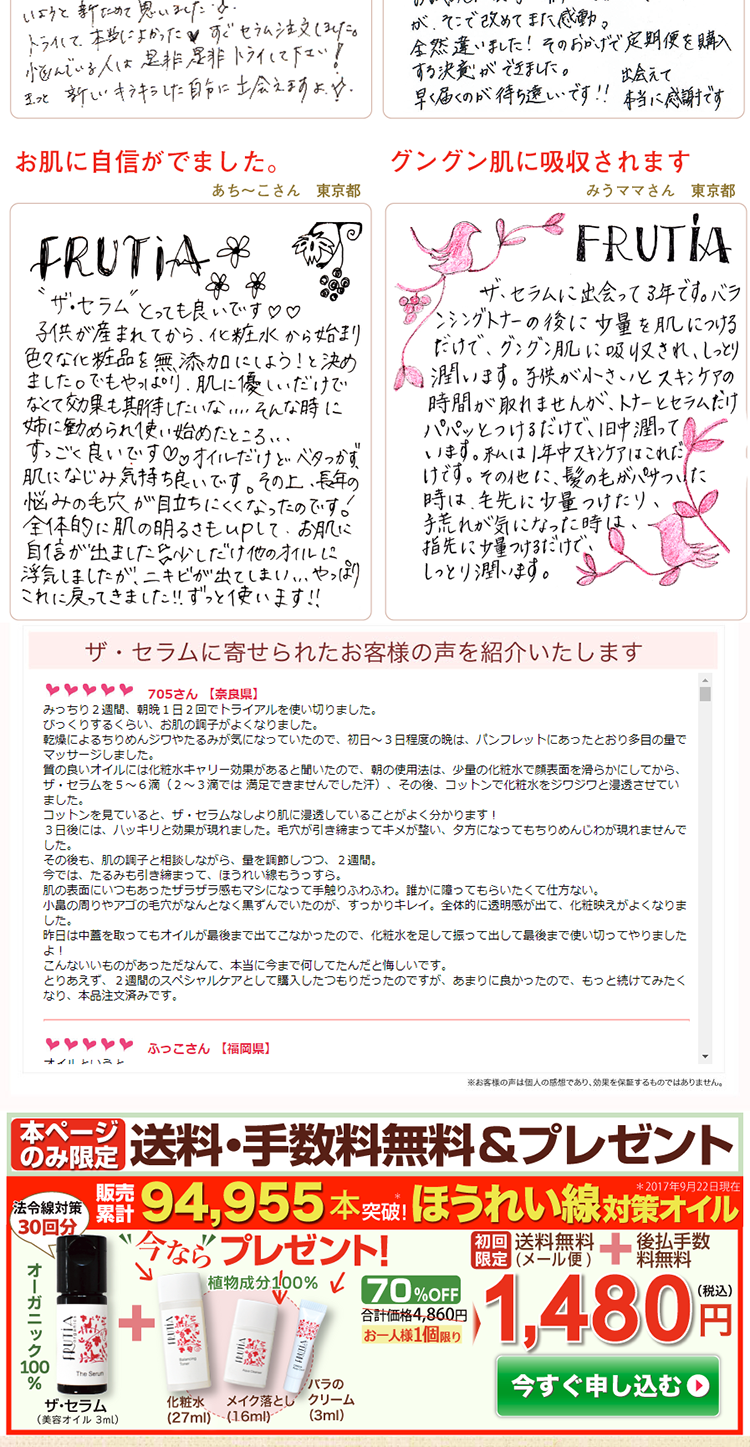 いようと新ためて思いました
トライして、本当によかった♥すぐセラム注文しました。
悩んでいる人は是非是非トライして下さい!
きっと 新しいキラキラした自分に出会えますよ
が、そこで改めてまた感動。
全然違いました!そのおかげで定期便を購入
する決意ができました。
早く届くのが待ち遠しいです!!
出会えて
本当に感謝です
お肌に自信がでました。
あち〜こさん 東京都
FRUTiA
"ザ・セラム"とっても良いです♡♡
子供が産まれてから、化粧水から始まり
色々な化粧品を無添加にしよう!と決め
ました。でもやっぱり、肌に優しいだけで
なくて効果も期待したいな... そんな時に
姉に勧められ使い始めたところ...
すっごく良いです♡♡オイルだけどベタつかず、
肌になじみ気持ち良いです。その上、長年の
悩みの毛穴が目立ちにくくなったのです!
全体的に肌の明るさもupして、お肌に
自信が出ました 少しだけ他のオイルに
浮気しましたが、ニキビが出てしまい...やっぱり
これに戻ってきました!!ずっと使います!!
グングン肌に吸収されます
みうママさん 東京都
FRUTiA
ザ・セラムに出会って3年です。バラ
ンシングトナーの後に少量を肌につける
だけで、グングン肌に吸収され、しっとり
潤います。子供が小さいとスキンケアの
時間が取れませんが、トナーとセラムだけ
パパッとつけるだけで、1日中潤って
います。私は1年中スキンケアはこれだ
けです。その他に、髪の毛がパサついた
時は、毛先に少量つけたり、
手荒れが気になった時は、
指先に少量つけるだけで、
しっとり潤います。
ザ・セラムに寄せられたお客様の声を紹介いたします
705さん 【奈良県】
みっちり2週間、朝晩1日2回でトライアルを使い切りました。
びっくりするくらい、お肌の調子がよくなりました。
乾燥によるちりめんジワやたるみが気になっていたので、初日〜3日程度の晩は、パンフレットにあったとおり多目の量で
マッサージしました。
質の良いオイルには化粧水キャリー効果があると聞いたので、朝の使用法は、少量の化粧水で顔表面を滑らかにしてから、
ザ・セラムを5〜6滴(2〜3滴では 満足できませんでした汗)、その後、コットンで化粧水をジワジワと浸透させてい
ました。
コットンを見ていると、ザ・セラムなしより肌に浸透していることがよく分かります!
3日後には、ハッキリと効果が現れました。毛穴が引き締まってキメが整い、夕方になってもちりめんじわが現れませんで
した。
その後も、肌の調子と相談しながら、量を調節しつつ、2週間。
今では、たるみも引き締まって、ほうれい線もうっすら。
肌の表面にいつもあったザラザラ感もマシになって手触りふわふわ。誰かに障ってもらいたくて仕方ない。
小鼻の周りやアゴの毛穴がなんとなく黒ずんでいたのが、すっかりキレイ。全体的に透明感が出て、化粧映えがよくなりま
した。
昨日は中蓋を取ってもオイルが最後まで出てこなかったので、化粧水を足して振って出して最後まで使い切ってやりました
よ!
こんないいものがあっただなんて、本当に今まで何してたんだと悔しいです。
とりあえず、2週間のスペシャルケアとして購入したつもりだったのですが、あまりに良かったので、もっと続けてみたく
なり、本品注文済みです。
ふっこさん 【福岡県】
オイルというと
※お客様の声は個人の感想であり、効果を保証するものではありません。
本ページ
のみ限定
送料・手数料無料&プレゼント
法令線対策
30回分
販売
累計
94,955本突破!* ほうれい線対策オイル
*2017年9月22日現在
オーガニック100%
FRUTIA
The Serum
ザ・セラム
(美容オイル 3ml)
"今なら"プレゼント!
植物成分100%
FRUTIA
Balancing
Toner
化粧水
(27ml)
FRUTIA
メイク落とし
(16ml)
FRUTIA
バラの
クリーム
(3ml)
70%OFF
合計価格4,860円
お一人様1個限り
初回
限定
送料無料
(メール便)
+
後払手数
料無料
1,480円
(税込)
今すぐ申し込む